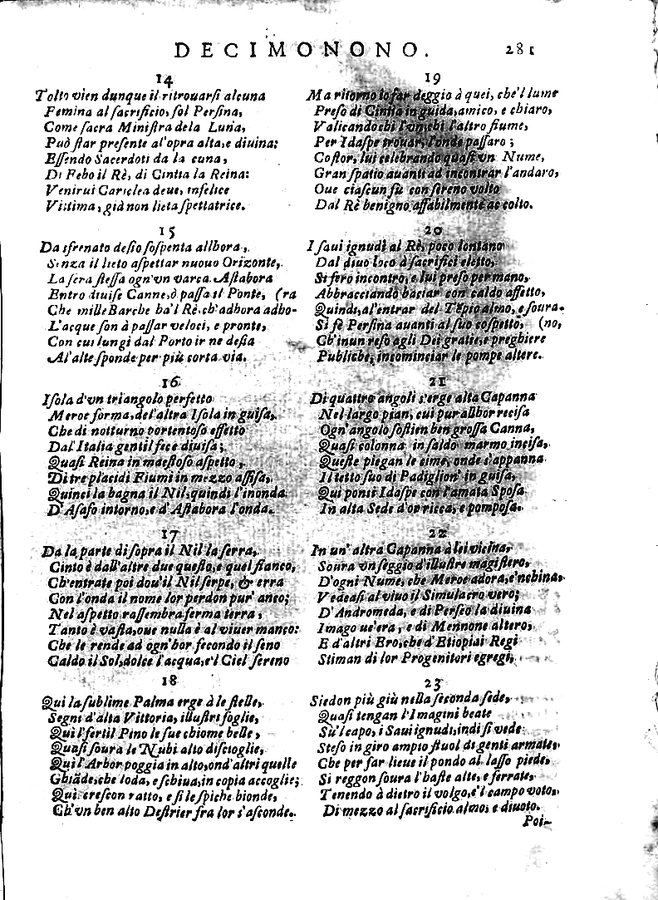 DECIMONONO. 281
14
Tolto vien dunque il ritrouarsi alcuna
Femina al sacrificio, sol Persina,
Come sacra Ministra dela Luna,
Può star presente al'opra alta, e diuina:
Essendo Sacerdoti da la cuna,
Di Febo il Rè, di Cintia la Reina:
Venirui Cariclea deue, infelice
Vittima, già non lieta spettatrice.
15
Da sfrenato desio sospenta allhora,
Senza il lieto aspettar nuouo Orizonte,
La sera stessa ogn'vn varca Astabora
Entro diuise Canne, ò passa il Ponte, (ra
Che mille Barche ha'l Rè, ch'adhora adho-
L'acque son à passar veloci, e pronte,
Con cui lungi dal Porto ir ne desia
Al'alte sponde per più corta via.
16
Isola d'vn triangolo perfetto
Meroe forma, del'altra Isola in guisa,
Che di notturno portentoso effetto
Dal'Italia gentil fece diuisa;
Quasi Reina in maestoso aspetto,
Di tre placidi Fiumi in mezzo assisa,
Quinci la bagna il Nil, quindi l'inonda
D'Asaso intorno, e d'Astabora l'onda.
17
Da la parte di sopra il Nil la serra,
Cinto è dall'altre due questo, e quel fianco,
Ch'entrate poi dou'il Nil serpe, & erra
Con l'onda il nome lor perdon pur'anco;
Nel aspetto rassembra ferma terra,
Tanto è vasta, oue nulla è al viuer manco:
Che le rende ad ogn'hor fecondo il seno
Caldo il Sol, dolce l'acqua, e'l Ciel sereno
18
Qui la sublime Palma erge à le stelle,
Segni d'alta Vittoria, illustri foglie,
Qui l'fertil Pino le sue chiome belle,
Quasi soura le Nubi alto discioglie,
Qui l'Arbor poggia in alto, ond'altri quelle
Ghiade, che loda, e schiua, in copia accoglie;
Qui crescon ratto, e sì le spiche bionde,
Ch'vn ben alto Destrier fra lor s'asconde.
19
Ma ritorno lo far deggio à quei, che'l lume
Preso di Cintia in guida, amico, e chiaro,
Valicando chi l'vn, chi l'altro fiume,
Per Idaspe trouar, l'onde passaro;
Costor, lui celebrando quasi vn Nume,
Gran spatio auanti ad incontrar l'andaro,
Oue ciascun fù con sereno volto
Dal Rè benigno affabilmente accolto.
20
I saui ignudi al Rè, poco lontano
Dal diuo loco à sacrifici eletto,
Si fero incontro, e lui preso per mano,
Abbracciando baciar con caldo affetto,
Quindi, al'entrar del Tẽpio almo, e soura-
Si fè Persina auanti al suo cospetto, (no,
Ch'inun reso agli Dei gratie, e preghiere
Publiche, incominciar le pompe altere.
21
Di quattro angoli s'erge alta Capanna
Nel largo pian, cui pur allhor recisa
Ogn'angolo sostien ben grossa Canna,
Quasi colonna in saldo marmo incisa,
Queste piegan le cime, onde s'appanna
Il tetto suo di Padiglion' in guisa,
Qui ponsi Idaspe con l'amata Sposa
In alta Sede d'or ricca, e pomposa.
22
In un' altra Capanna à lei vicina,
Soura vn seggio d'illustre magistero,
D'ogni Nume, che Meroe adora, e'nchina
Vedeasi al viuo il Simulacro vero;
D'Andromeda, e di Perseo la diuina
Imago ue'era, e di Mennone altero,
E d'altri Ero, che d'Etiopiai Regi
Stiman di lor Progenitori egregi,
23
Siedon più giù nella seconda sede,
Quasi tengan l'Imagini beate
Su'l capo, i Saui ignudi, indi si vede
Steso in giro ampio stuol di genti armate,
Che per far lieue il pondo al lasso piede
Si reggon soura l'haste alte, e ferrate,
Tenendo à dietro il volgo, e'l campo voto,
Di mezzo al sacrificio almo, e diuoto.
Poi-